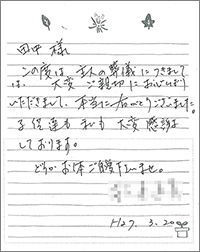 田中様
この度は、主人の葬儀につきまして
は、大変ご親切におとむらい
いただきまして、本当にありがとうございました。
子供達も私も大変感謝
しております。
どうかお体ご自愛下さいませ。
H27.3.20